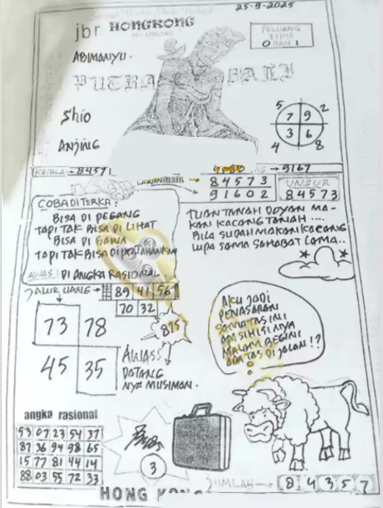 25-9-2025
jbr HONGKONG
PELUANG
TIPIS
0 DAN 1
ABIMANYU
PUTRA BALI
Shio
Anjing
5 2
7 9
3 6
4 8
KEPALA → 8457
→ 9167
84573
91602
UNSUR
84573
COBA DITERKA:
BISA DI PEGANG
TAPI TAK BISA DI LIHAT
BISA DI BAWA
TAPI TAK BISA DI
AWAS! DI ANGKA RASIONAL
TUAN TANAH DOYAN MA-
KAN KACANG TANAH ....
BILA SUDAH MAKAN KACANG
LUPA SAMA SAHABAT LAMA..
JALUR UANG → 89 41 56
70 32
73 78
45 35
875
AWASS
DATANG
NYA MUSIMAN.
AKU JADI
PENASARAN
SAMA TAS INI
APA SIH ISI NYA
MALAM BEGINI
ADA TAS DI JALAN!?
angka rasional
53 07 23 54 37
87 36 94 98 65
15 77 81 44 14
88 03 55 72 33
3
JUMLAH → 8 4 3 5 7
HONG KONG